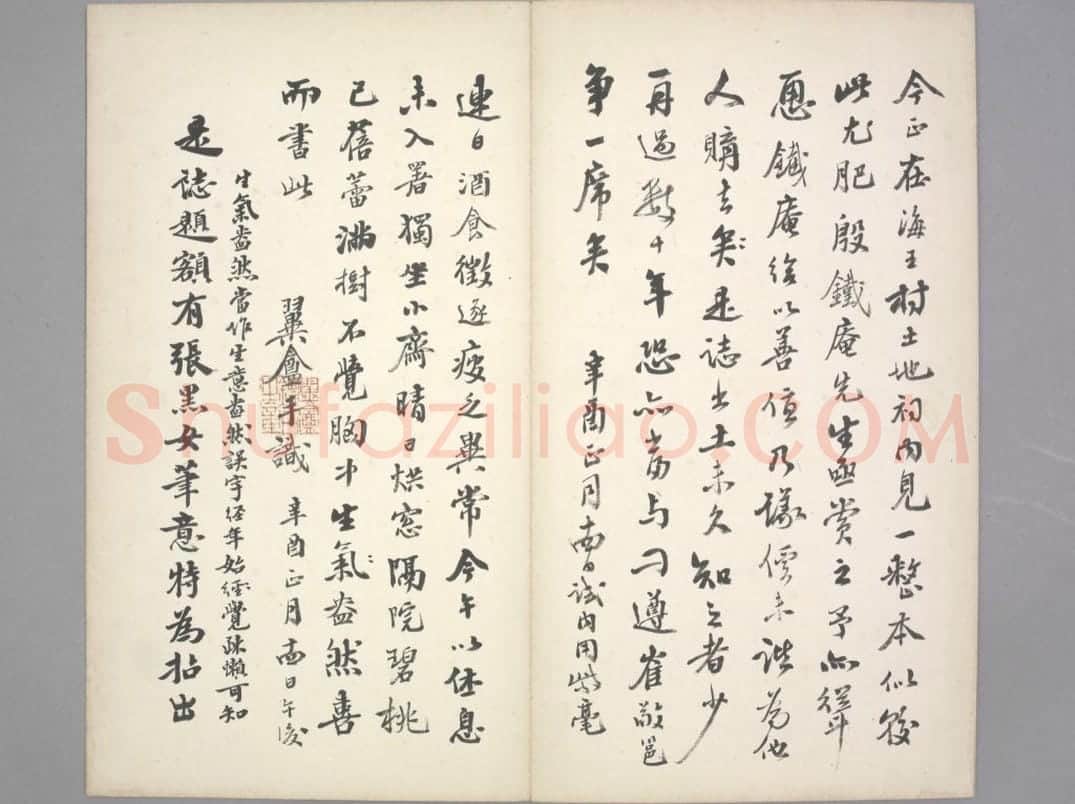 今正在海王村土地祠內見一整本似較
此尤肥殷鐵庵先生亟賞之予亦聳
恿鐵庵給以善值乃議價未諧為他
人購去矣是誌出土未久知之者少
再過數十年恐亦當与刁遵崔敬邕
争一席矣 辛酉正月 日試內用紫毫
連日酒食徵逐疲乏異常今午以休息
未入署獨坐小齋晴日烘窓隔院碧桃
已蓓蕾滿樹不覺胸中生氣盎然喜
而書此 翼盦手識 辛酉正月 日午後
生氣盎然當作生意盎然誤字经年始經覺疎懶可知
是誌題額有張黑女筆意特為拈出
Shufaziliao.COM